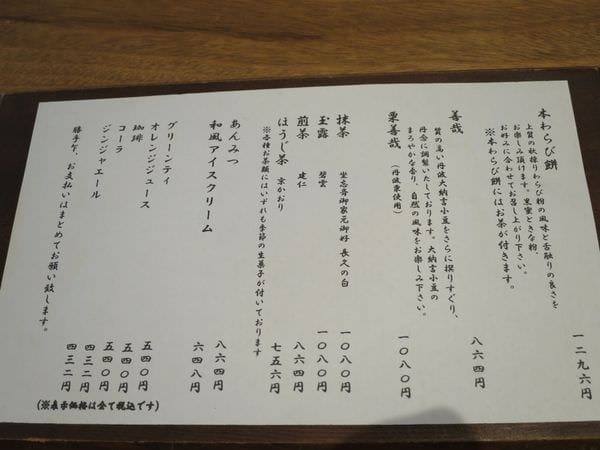 本わらび餅 一二九六円
上質の秋採りわらび粉の風味と舌触りの良さを
お楽しみ頂けます。黒蜜ときな粉、
お好みに合わせてお召し上がり下さい。
※本わらび餅にはお茶が付きます。
善哉 八六四円
質の高い丹波大納言小豆をさらに撰りすぐり、
丹念に調製いたしております。大納言小豆の
まろやかな香り、自然の風味をお楽しみ下さい。
栗善哉 (丹波栗使用) 一〇八〇円
抹茶 坐忘斎御家元御好 長久の白 一〇八〇円
玉露 碧雲 一〇八〇円
煎茶 建仁 八六四円
ほうじ茶 京かおり 七五六円
※各種お茶類にはいずれも季節の生菓子が付いております
あんみつ 八六四円
和風アイスクリーム 六四八円
グリーンティ 五四〇円
オレンジジュース 五四〇円
珈琲 五四〇円
コーラ 四三二円
ジンジャエール 四三二円
勝手乍、お支払いはまとめてお願い致します。
(※表示価格は全て税込です)